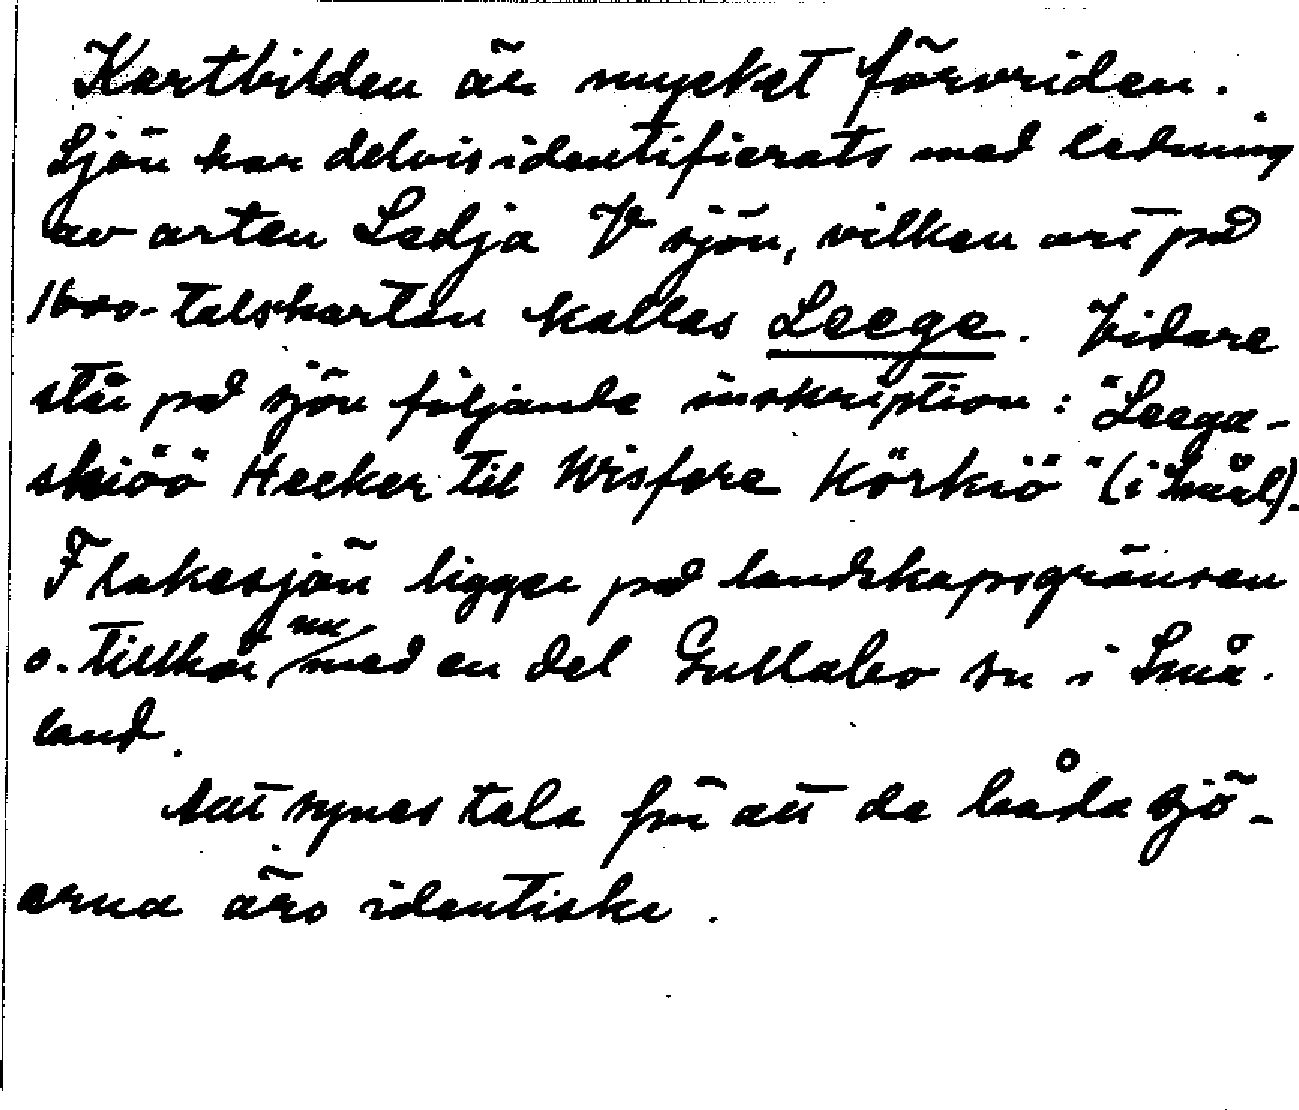 Kartbilden är mycket förvriden.
Sjön har delvis identifierats med ledning
av orten Ledja V sjön, vilken ort på
1600-talskartan kallas Leege. Vidare
står på sjön följande inskription: "Leega-
skiöö Hecker til Wisfere Körkiö" (i Smål).
Flakesjön ligger på landskapsgränsen
o. tillhör nu med en del Gullabo sn i Små-
land.
Allt synes tala för att de båda sjö-
arna äro identiska.